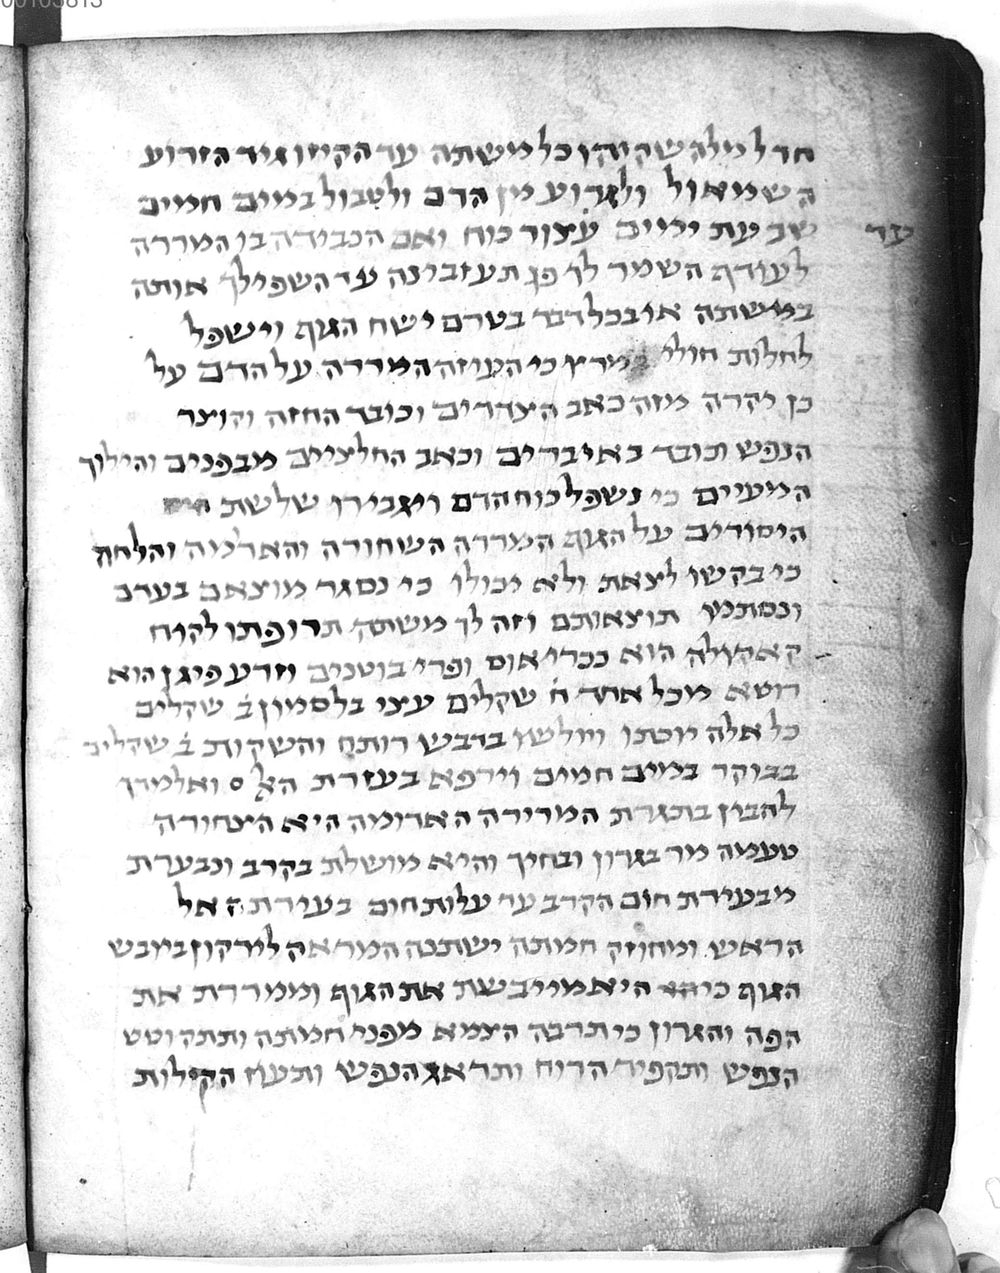 00105813
חדל מלהשקותן כל משתה עד הקיזו גיד הזרוע
השמאול ולגרוע מן הדם ולטבול במים חמים
שבעת ימים עצור כוח ואם הכבודה בו המררה
עד
לעודף השמר לך פן תעזבינה עד השפילך אותה
במשתה או בכל דבר בטרם ישח הגוף וישפל
לחלות חולי נמרץ כי העוזה המררה על הדם על
כן יקרה מזה כאב הצדדים וכובד החזה וקוצר
הנפש וכובד באיברים וכאב החלציים מבפנים והילוך
המעיים כי נשפל כוח הדם ויגבירו שלשת
היסודים על הגוף המררה השחורה והאדמה והלחה
כי בקשו לצאת ולא יכולו כי נסגר מוצאם בערב
ונסתמו תוצאותם וזה לך משתה תרופתו לקוח
קאקולה הוא ככריאום ופרי בוטנים וזרע פיגן הוא
רוטא מכל אחד ח שקלים עצי בלסמון ב שקלים
כל אלה יוכתו ויולשו בדבש רותח והשקות ב שקלים
בבוקר במים חמים וירפא בעזרת האל ס ואלמדך
להבין בתגרת המרירה האדומה היא הצחורה
טעמה מר בגרון ובחיך והיא מושלת בקרב ונבערת
מבעירת חום הקרב עד עלות חום בעירתה אל
הראש ומחוזק חמותה ישתנה המראה לירקון ביובש
הגוף כי היא מייבשת את הגוף וממררת את
הפה והגרון כי תרבה הצמא מפני חמותה ותתקוטט
הנפש ותקפיד הרוח ותדאג הנפש ותעוז הקילות